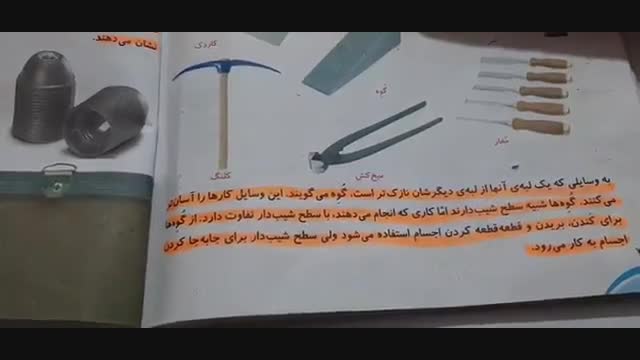 نشان می‌دهند.
کاردک
گُوِه
مُغار
میخ‌کش
کلنگ
به وسایلی که یک لبه‌ی آنها از لبه‌ی دیگرشان نازک‌تر است، گُوِه می‌گویند. این وسایل کارها را آسان‌تر
می‌کنند. گُوِه‌ها شبیه سطح شیب‌دارند امّا کاری که انجام می‌دهند، با سطح شیب‌دار تفاوت دارد. از گُوِه‌ها
برای کَندن، بریدن و قطعه‌قطعه کردن اجسام استفاده می‌شود ولی سطح شیب‌دار برای جابه‌جا کردن
اجسام به کار می‌رود.